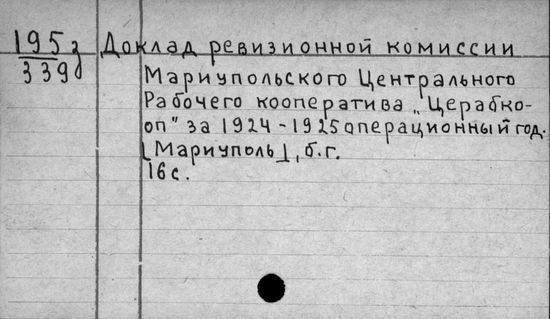 195з Доклад ревизионной комиссии
339д Мариупольского Центрального
Рабочего кооператива „Церабко-
оп" за 1924-1925 операционный год.
[Мариуполь], б.г.
16 с.